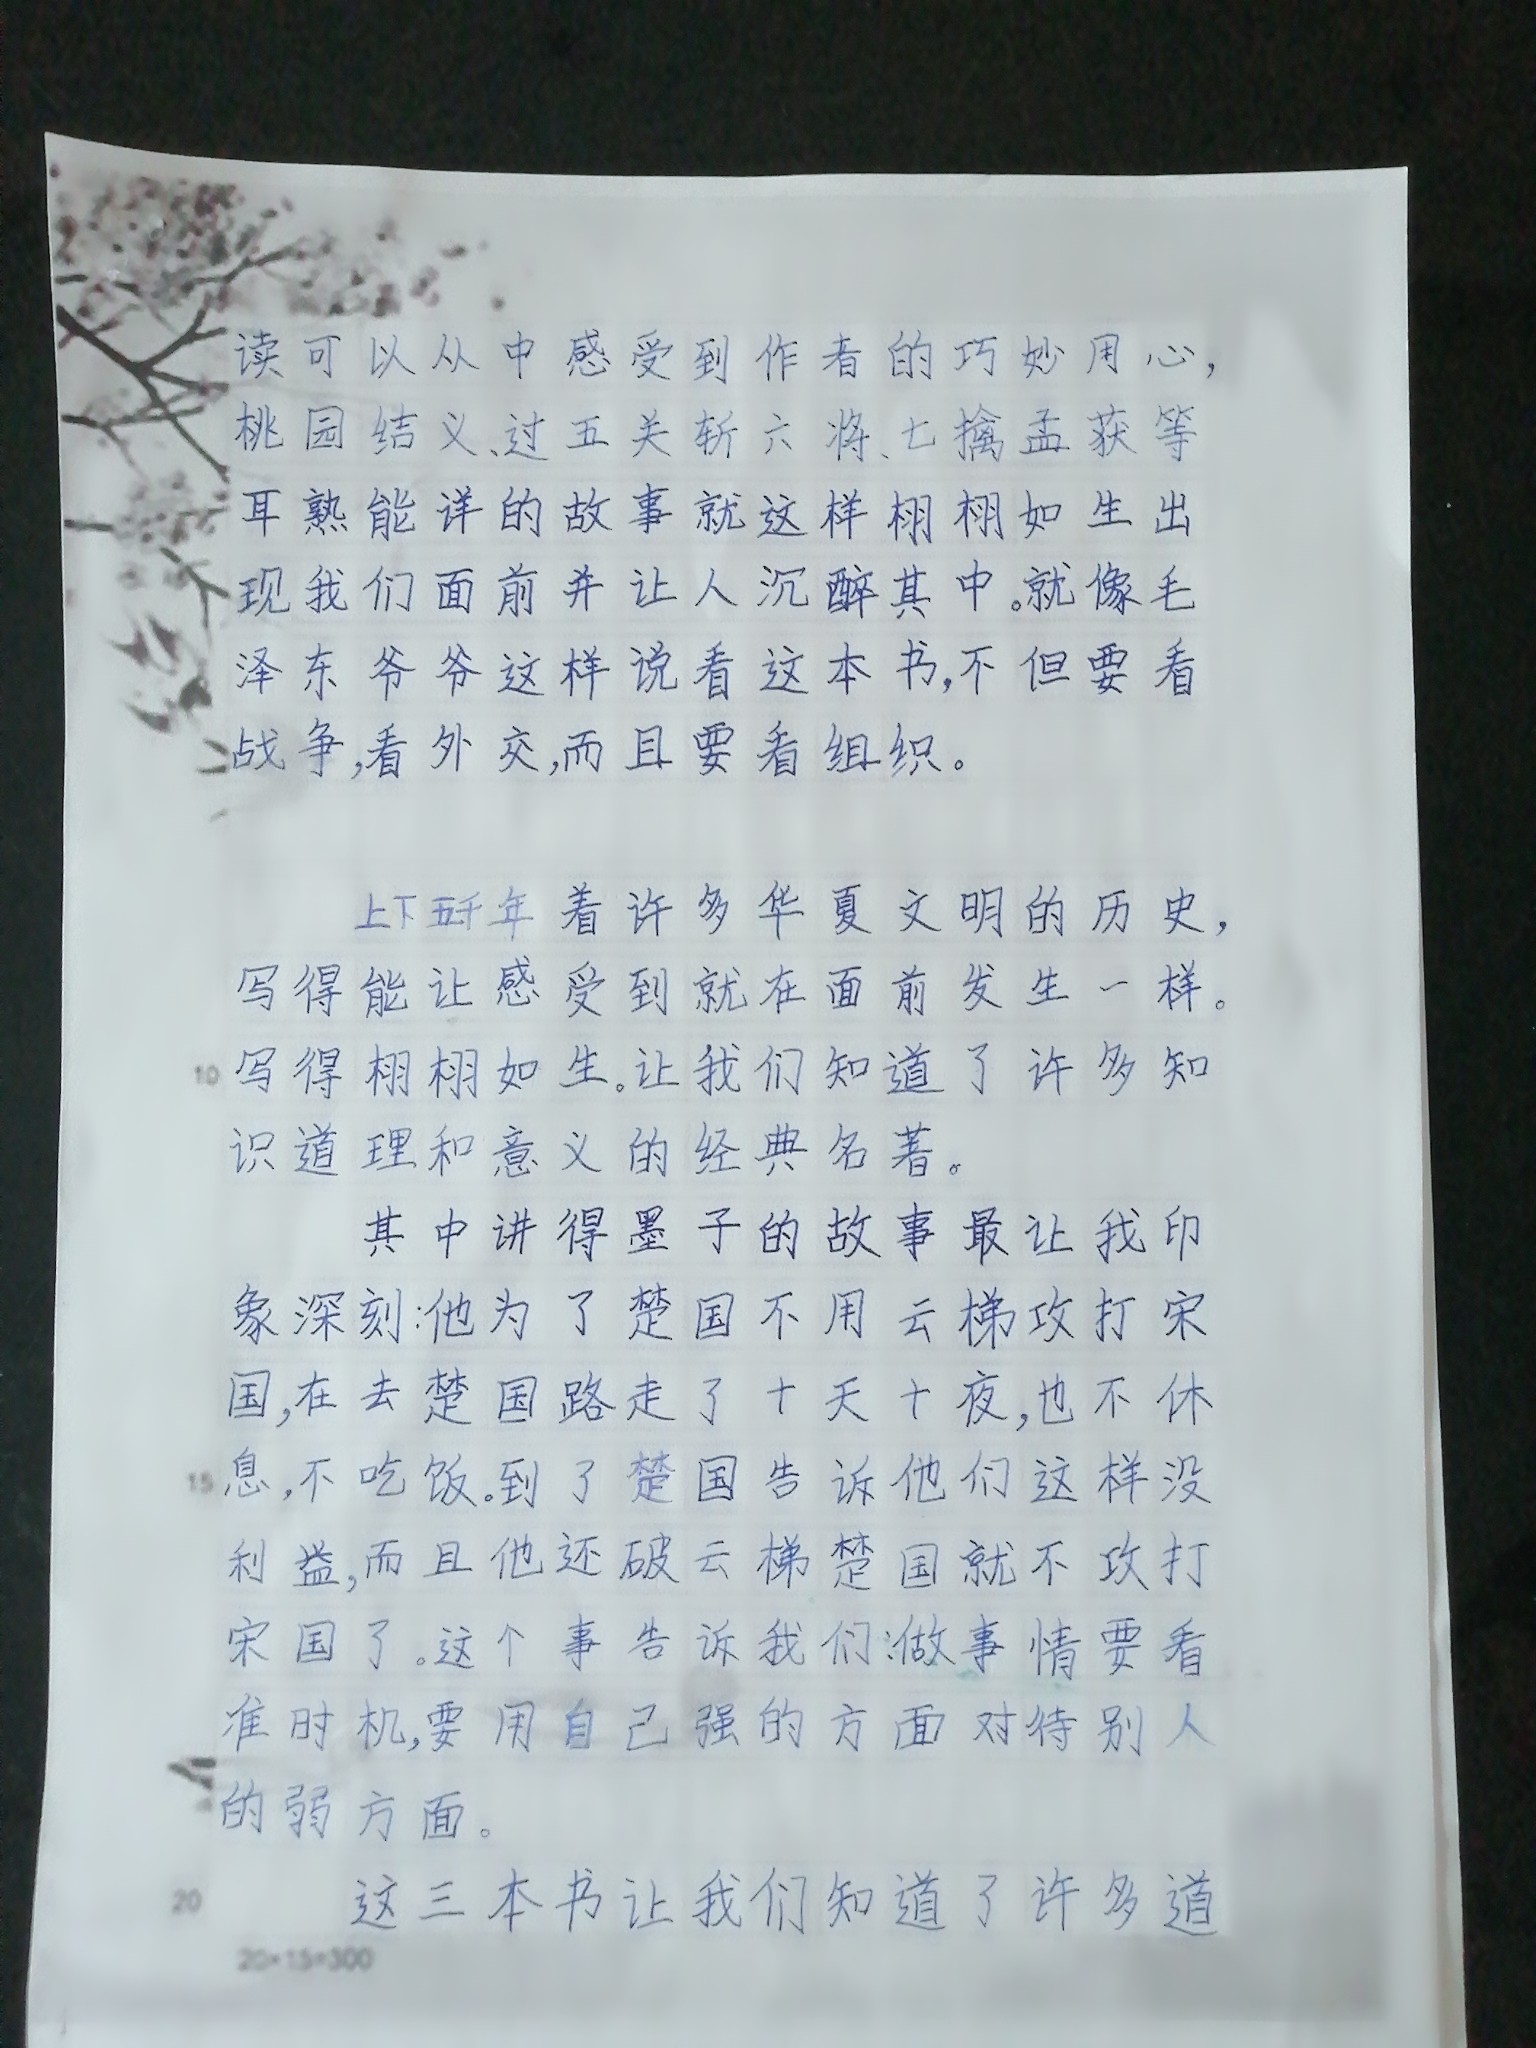 读可以从中感受到作者的巧妙用心,
桃园结义、过五关斩六将、七擒孟获等
耳熟能详的故事就这样栩栩如生出
现我们面前并让人沉醉其中。就像毛
泽东爷爷这样说看这本书,不但要看
战争,看外交,而且要看组织。
上下五千年着许多华夏文明的历史,
写得能让感受到就在面前发生一样。
10 写得栩栩如生。让我们知道了许多知
识道理和意义的经典名著。
其中讲得墨子的故事最让我印
象深刻:他为了楚国不用云梯攻打宋
国,在去楚国路走了十天十夜,也不休
15 息,不吃饭。到了楚国告诉他们这样没
利益,而且他还破云梯楚国就不攻打
宋国了。这个事告诉我们:做事情要看
准时机,要用自己强的方面对待别人
的弱方面。
20 这三本书让我们知道了许多道
20×15=300